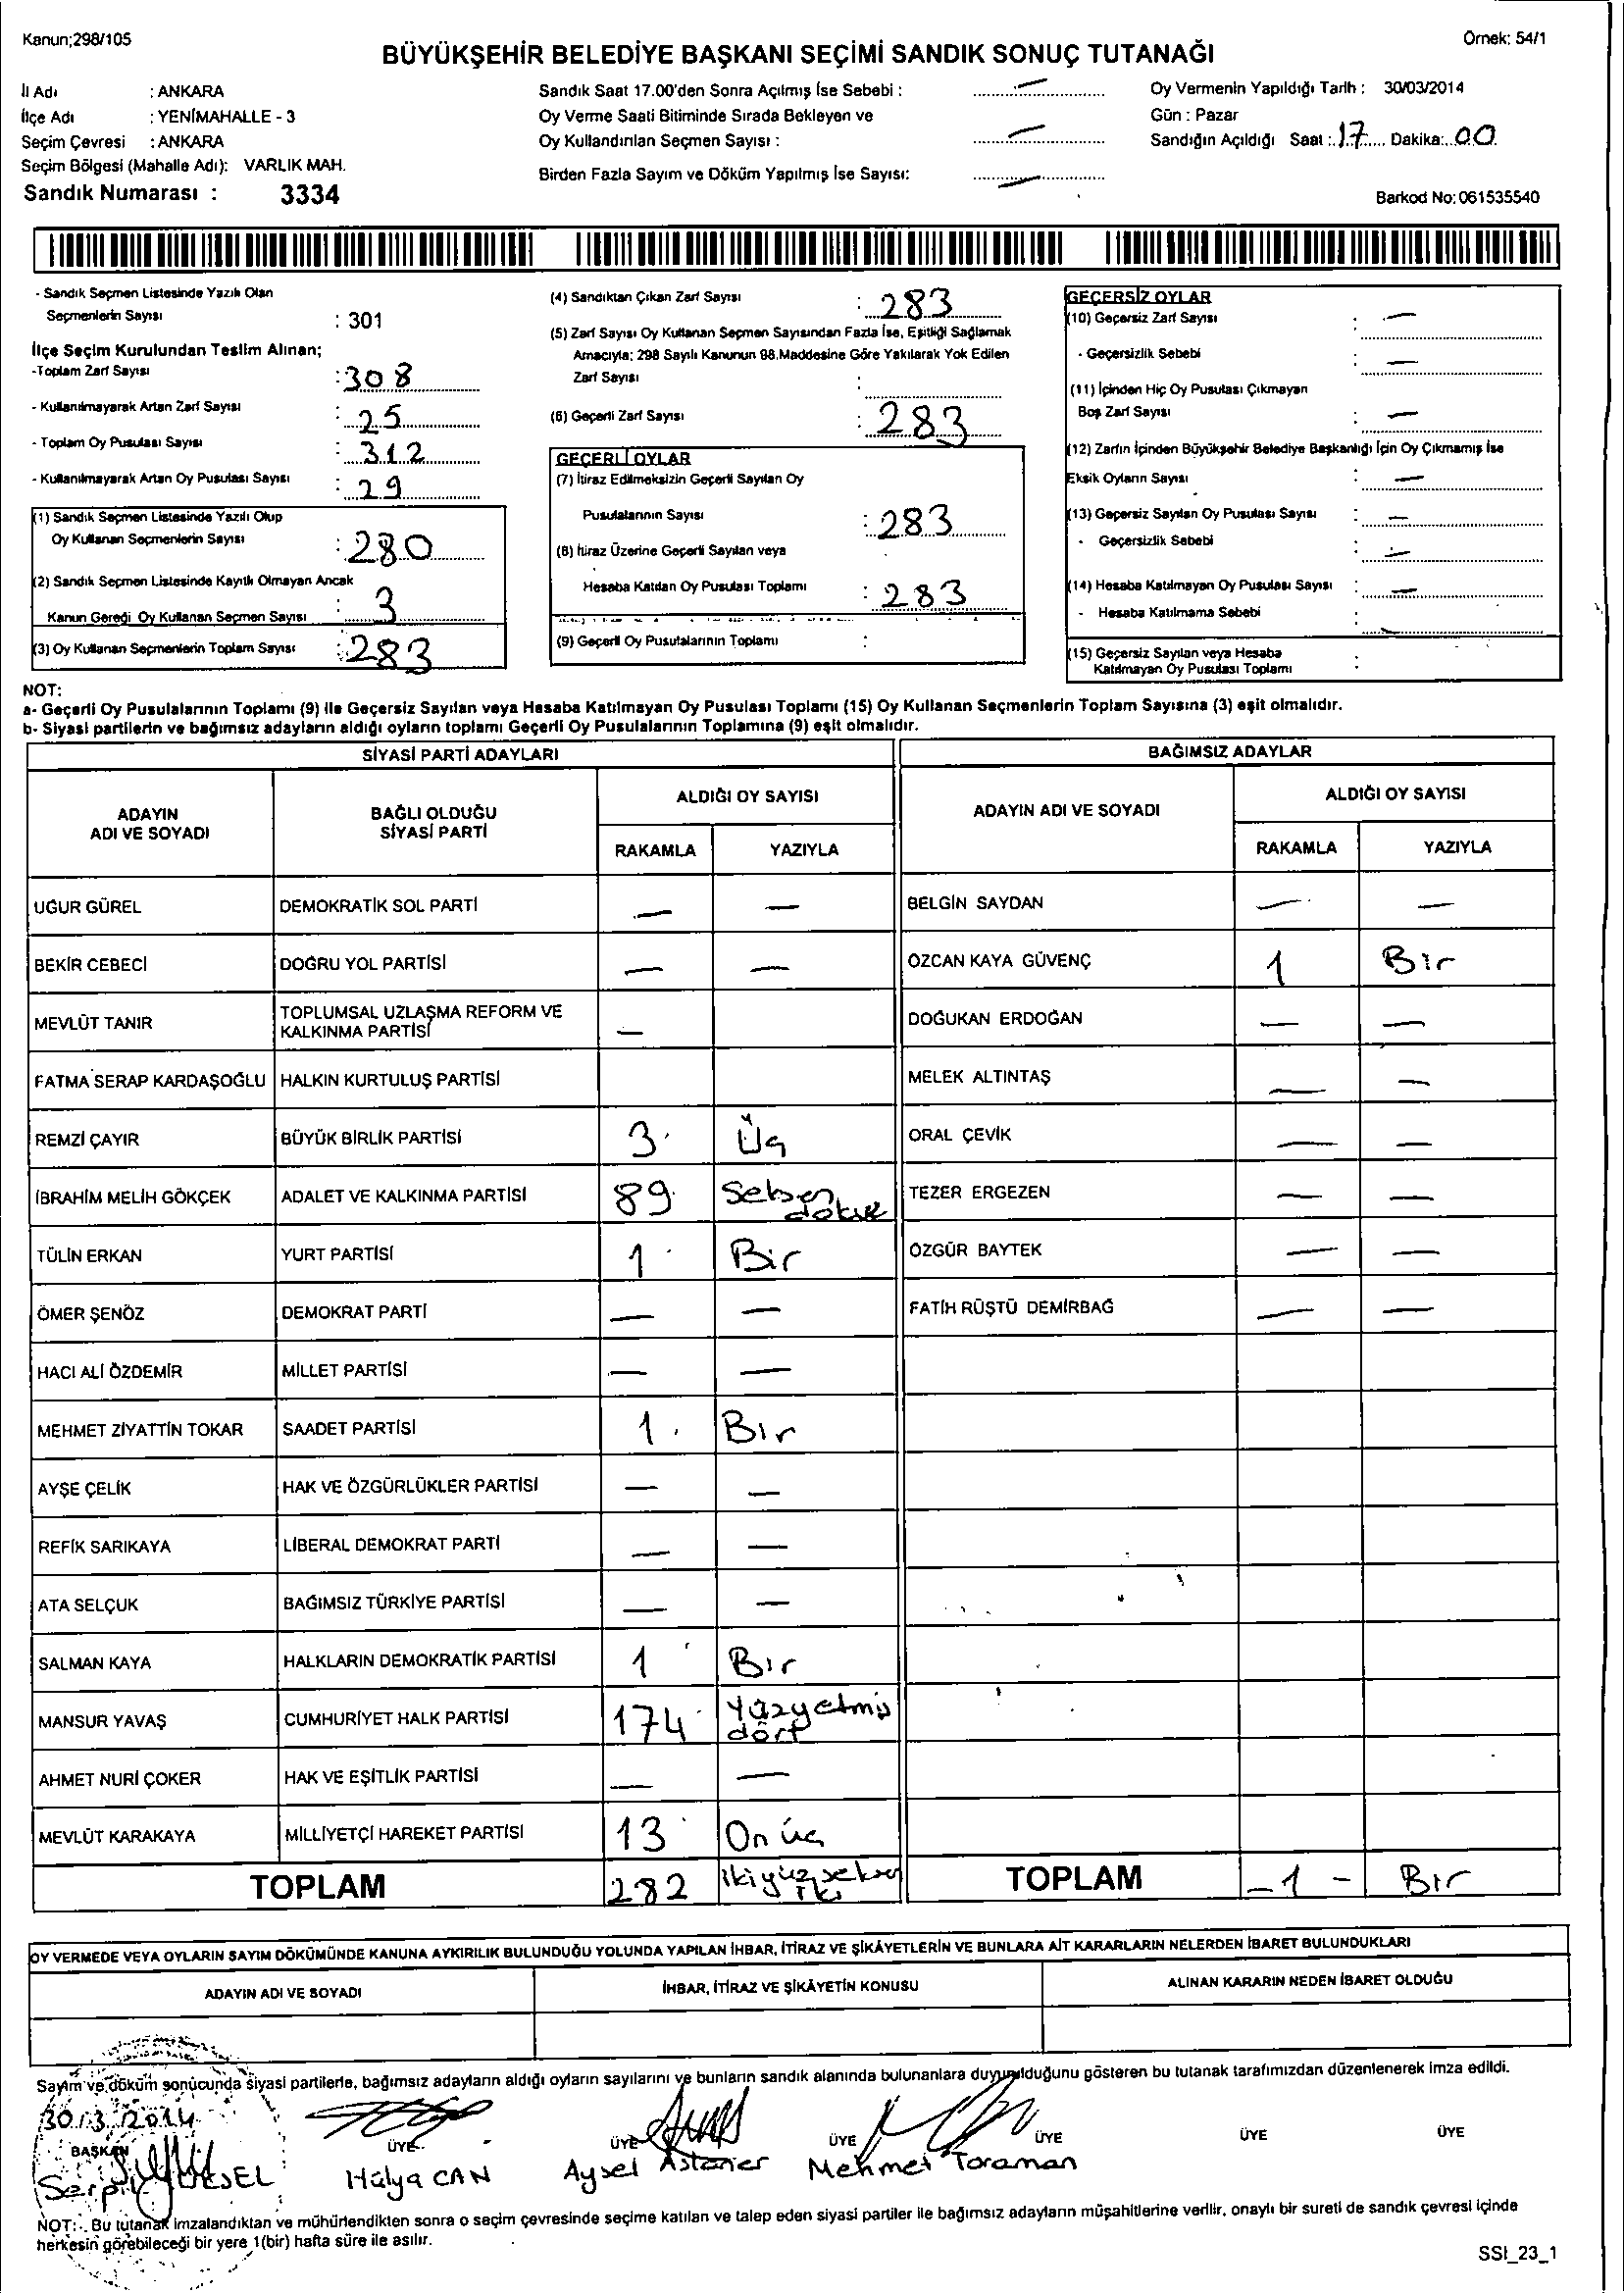 Kanun;298/105
Örnek: 54/1
BÜYÜKŞEHİR BELEDİYE BAŞKANI SEÇİMİ SANDIK SONUÇ TUTANAĞI
İl Adı : ANKARA
İlçe Adı : YENİMAHALLE - 3
Seçim Çevresi : ANKARA
Seçim Bölgesi (Mahalle Adı): VARLIK MAH.
Sandık Numarası : 3334
Sandık Saat 17.00'den Sonra Açılmış İse Sebebi : —
Oy Verme Saati Bitiminde Sırada Bekleyen ve
Oy Kullandırılan Seçmen Sayısı : —
Birden Fazla Sayım ve Döküm Yapılmış İse Sayısı: —
Oy Vermenin Yapıldığı Tarih : 30/03/2014
Gün : Pazar
Sandığın Açıldığı Saat : 17 Dakika: 00
Barkod No: 061535540
- Sandık Seçmen Listesinde Yazılı Olan
Seçmenlerin Sayısı : 301
İlçe Seçim Kurulundan Teslim Alınan;
-Toplam Zarf Sayısı : 308
- Kullanılmayarak Artan Zarf Sayısı : 25
- Toplam Oy Pusulası Sayısı : 312
- Kullanılmayarak Artan Oy Pusulası Sayısı : 29
(1) Sandık Seçmen Listesinde Yazılı Olup
Oy Kullanan Seçmenlerin Sayısı : 280
(2) Sandık Seçmen Listesinde Kayıtlı Olmayan Ancak
Kanun Gereği Oy Kullanan Seçmen Sayısı : 3
(3) Oy Kullanan Seçmenlerin Toplam Sayısı : 283
(4) Sandıktan Çıkan Zarf Sayısı : 283
(5) Zarf Sayısı Oy Kullanan Seçmen Sayısından Fazla İse, Eşitliği Sağlamak
Amacıyla; 298 Sayılı Kanunun 98.Maddesine Göre Yakılarak Yok Edilen
Zarf Sayısı :
(6) Geçerli Zarf Sayısı : 283
GEÇERLİ OYLAR
(7) İtiraz Edilmeksizin Geçerli Sayılan Oy
Pusulalarının Sayısı : 283
(8) İtiraz Üzerine Geçerli Sayılan veya
Hesaba Katılan Oy Pusulası Toplamı : 283
(9) Geçerli Oy Pusulalarının Toplamı :
GEÇERSİZ OYLAR
(10) Geçersiz Zarf Sayısı : —
- Geçersizlik Sebebi : —
(11) İçinden Hiç Oy Pusulası Çıkmayan
Boş Zarf Sayısı : —
(12) Zarfın İçinden Büyükşehir Belediye Başkanlığı İçin Oy Çıkmamış İse
Eksik Oyların Sayısı : —
(13) Geçersiz Sayılan Oy Pusulası Sayısı : —
- Geçersizlik Sebebi : —
(14) Hesaba Katılmayan Oy Pusulası Sayısı : —
- Hesaba Katılmama Sebebi :
(15) Geçersiz Sayılan veya Hesaba
Katılmayan Oy Pusulası Toplamı :
NOT:
a- Geçerli Oy Pusulalarının Toplamı (9) ile Geçersiz Sayılan veya Hesaba Katılmayan Oy Pusulası Toplamı (15) Oy Kullanan Seçmenlerin Toplam Sayısına (3) eşit olmalıdır.
b- Siyasi partilerin ve bağımsız adayların aldığı oyların toplamı Geçerli Oy Pusulalarının Toplamına (9) eşit olmalıdır.
SİYASİ PARTİ ADAYLARI
ADAYIN ADI VE SOYADI BAĞLI OLDUĞU SİYASİ PARTİ ALDIĞI OY SAYISI
RAKAMLA YAZIYLA
UĞUR GÜREL DEMOKRATİK SOL PARTİ — —
BEKİR CEBECİ DOĞRU YOL PARTİSİ — —
MEVLÜT TANIR TOPLUMSAL UZLAŞMA REFORM VE KALKINMA PARTİSİ —
FATMA SERAP KARDAŞOĞLU HALKIN KURTULUŞ PARTİSİ
REMZİ ÇAYIR BÜYÜK BİRLİK PARTİSİ 3 Üç
İBRAHİM MELİH GÖKÇEK ADALET VE KALKINMA PARTİSİ 89 Seksen dokuz
TÜLİN ERKAN YURT PARTİSİ 1 Bir
ÖMER ŞENÖZ DEMOKRAT PARTİ — —
HACI ALİ ÖZDEMİR MİLLET PARTİSİ — —
MEHMET ZİYATTİN TOKAR SAADET PARTİSİ 1 Bir
AYŞE ÇELİK HAK VE ÖZGÜRLÜKLER PARTİSİ — —
REFİK SARIKAYA LİBERAL DEMOKRAT PARTİ — —
ATA SELÇUK BAĞIMSIZ TÜRKİYE PARTİSİ — —
SALMAN KAYA HALKLARIN DEMOKRATİK PARTİSİ 1 Bir
MANSUR YAVAŞ CUMHURİYET HALK PARTİSİ 174 Yüzyetmiş dört
AHMET NURİ ÇOKER HAK VE EŞİTLİK PARTİSİ — —
MEVLÜT KARAKAYA MİLLİYETÇİ HAREKET PARTİSİ 13 On üç
TOPLAM 282 ikiyüzseksen iki
BAĞIMSIZ ADAYLAR
ADAYIN ADI VE SOYADI ALDIĞI OY SAYISI
RAKAMLA YAZIYLA
BELGİN SAYDAN — —
ÖZCAN KAYA GÜVENÇ 1 Bir
DOĞUKAN ERDOĞAN — —
MELEK ALTINTAŞ — —
ORAL ÇEVİK — —
TEZER ERGEZEN — —
ÖZGÜR BAYTEK — —
FATİH RÜŞTÜ DEMİRBAĞ — —
TOPLAM -1- Bir
OY VERMEDE VEYA OYLARIN SAYIM DÖKÜMÜNDE KANUNA AYKIRILIK BULUNDUĞU YOLUNDA YAPILAN İHBAR, İTİRAZ VE ŞİKÂYETLERİN VE BUNLARA AİT KARARLARIN NELERDEN İBARET BULUNDUKLARI
ADAYIN ADI VE SOYADI İHBAR, İTİRAZ VE ŞİKÂYETİN KONUSU ALINAN KARARIN NEDEN İBARET OLDUĞU
Sayım ve döküm sonucunda siyasi partilerle, bağımsız adayların aldığı oyların sayılarını ve bunların sandık alanında bulunanlara duyurulduğunu gösteren bu tutanak tarafımızdan düzenlenerek imza edildi.
30/3/2014
BAŞKAN ÜYE ÜYE ÜYE ÜYE ÜYE ÜYE
Hülya CAN Aysel Mehmet Toraman
NOT:. Bu tutanak imzalandıktan ve mühürlendikten sonra o seçim çevresinde seçime katılan ve talep eden siyasi partiler ile bağımsız adayların müşahitlerine verilir, onaylı bir sureti de sandık çevresi içinde
herkesin görebileceği bir yere 1(bir) hafta süre ile asılır.
SSI_23_1